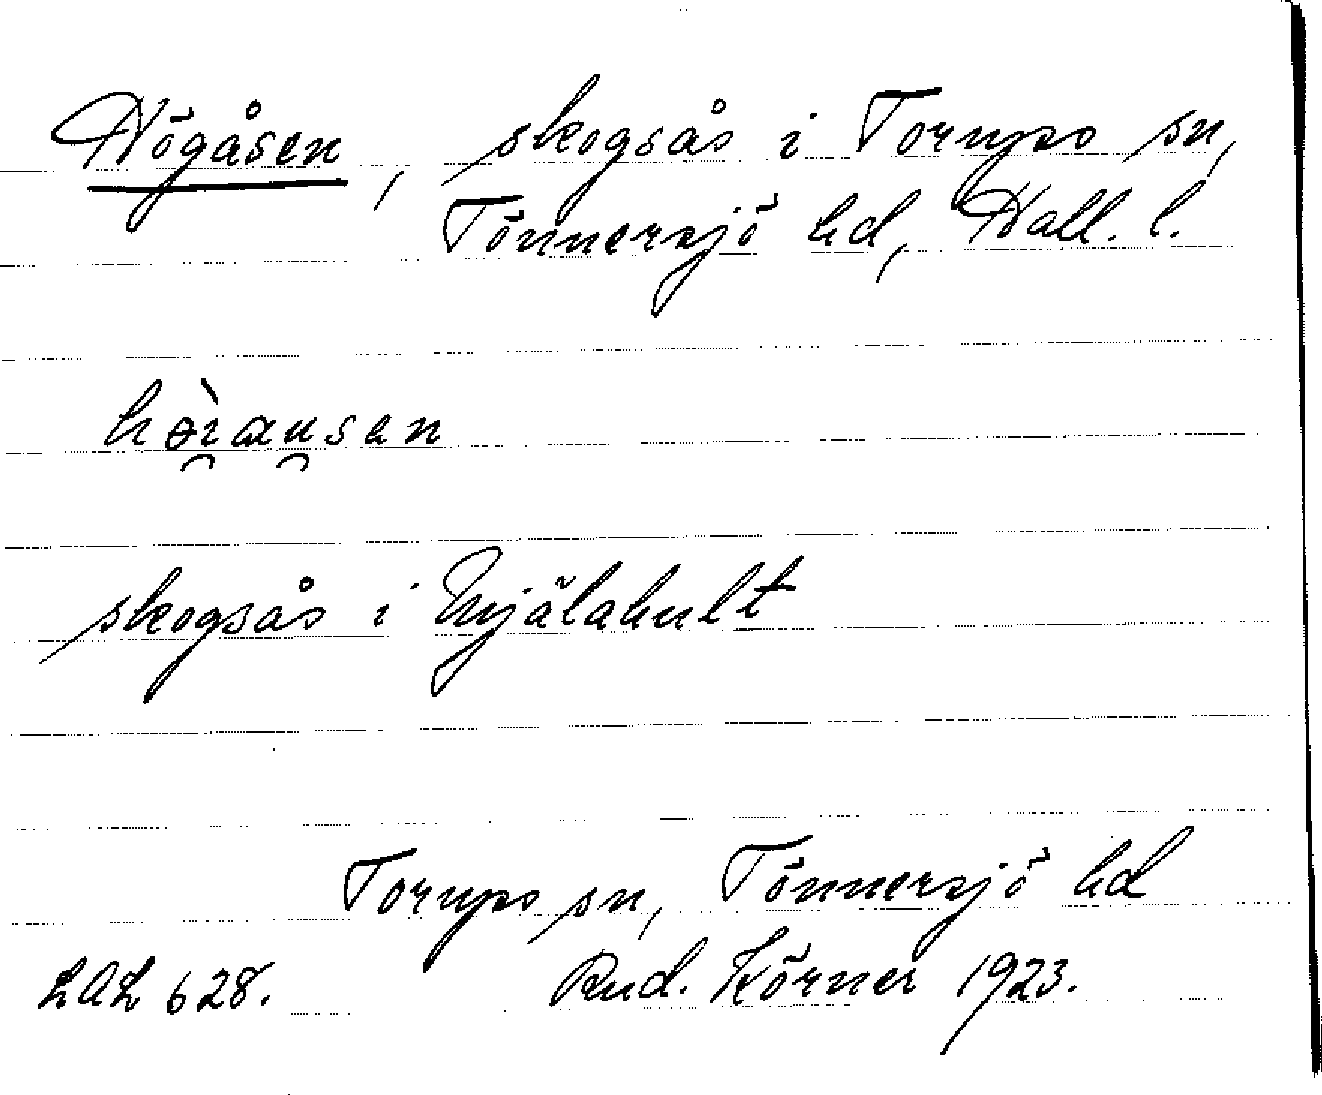 Högåsen, skogsås i Torups sn,
Tönnersjö hd, Hall. l.
høì̯au̯sen
skogsås i Mjälahult
Torups sn, Tönnersjö hd
LAL 628. Rud. Körner 1923.